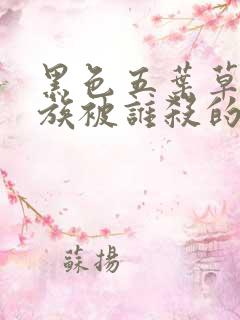 黑色五葉草
族被誰殺的
蘇揚